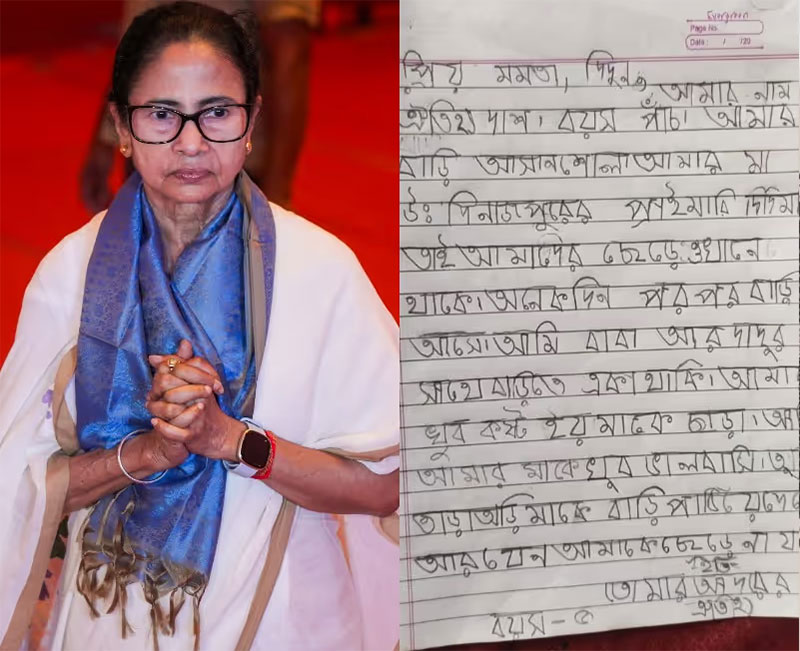 Evergreen
Page No.
Date: / /20
প্রিয় মমতা, দিদুন
আমার নাম
ঐতিহ্য দাশ। বয়স পাঁচ। আমার
বাড়ি আসানশোল। আমার মা
উঃ দিনাজপুরের প্রাইমারি দিদিমা
তাই আমাদের ছেড়ে ওখানে
থাকে। অনেকদিন পর পর বাড়ি
আসে। আমি বাবা আর দাদুর
সাথে বাড়িতে একা থাকি। আমা
খুব কষ্ট হয় মাকে ছাড়া। আ
আমার মাকে খুব ভালবাসি। তু
তাড়াতাড়ি মাকে বাড়ি পাঠিয়ে দেবে
আর যেন আমাকে ছেড়ে না য
ইতি
তোমার আদরের
ঐতিহ্য
বয়স - ৫